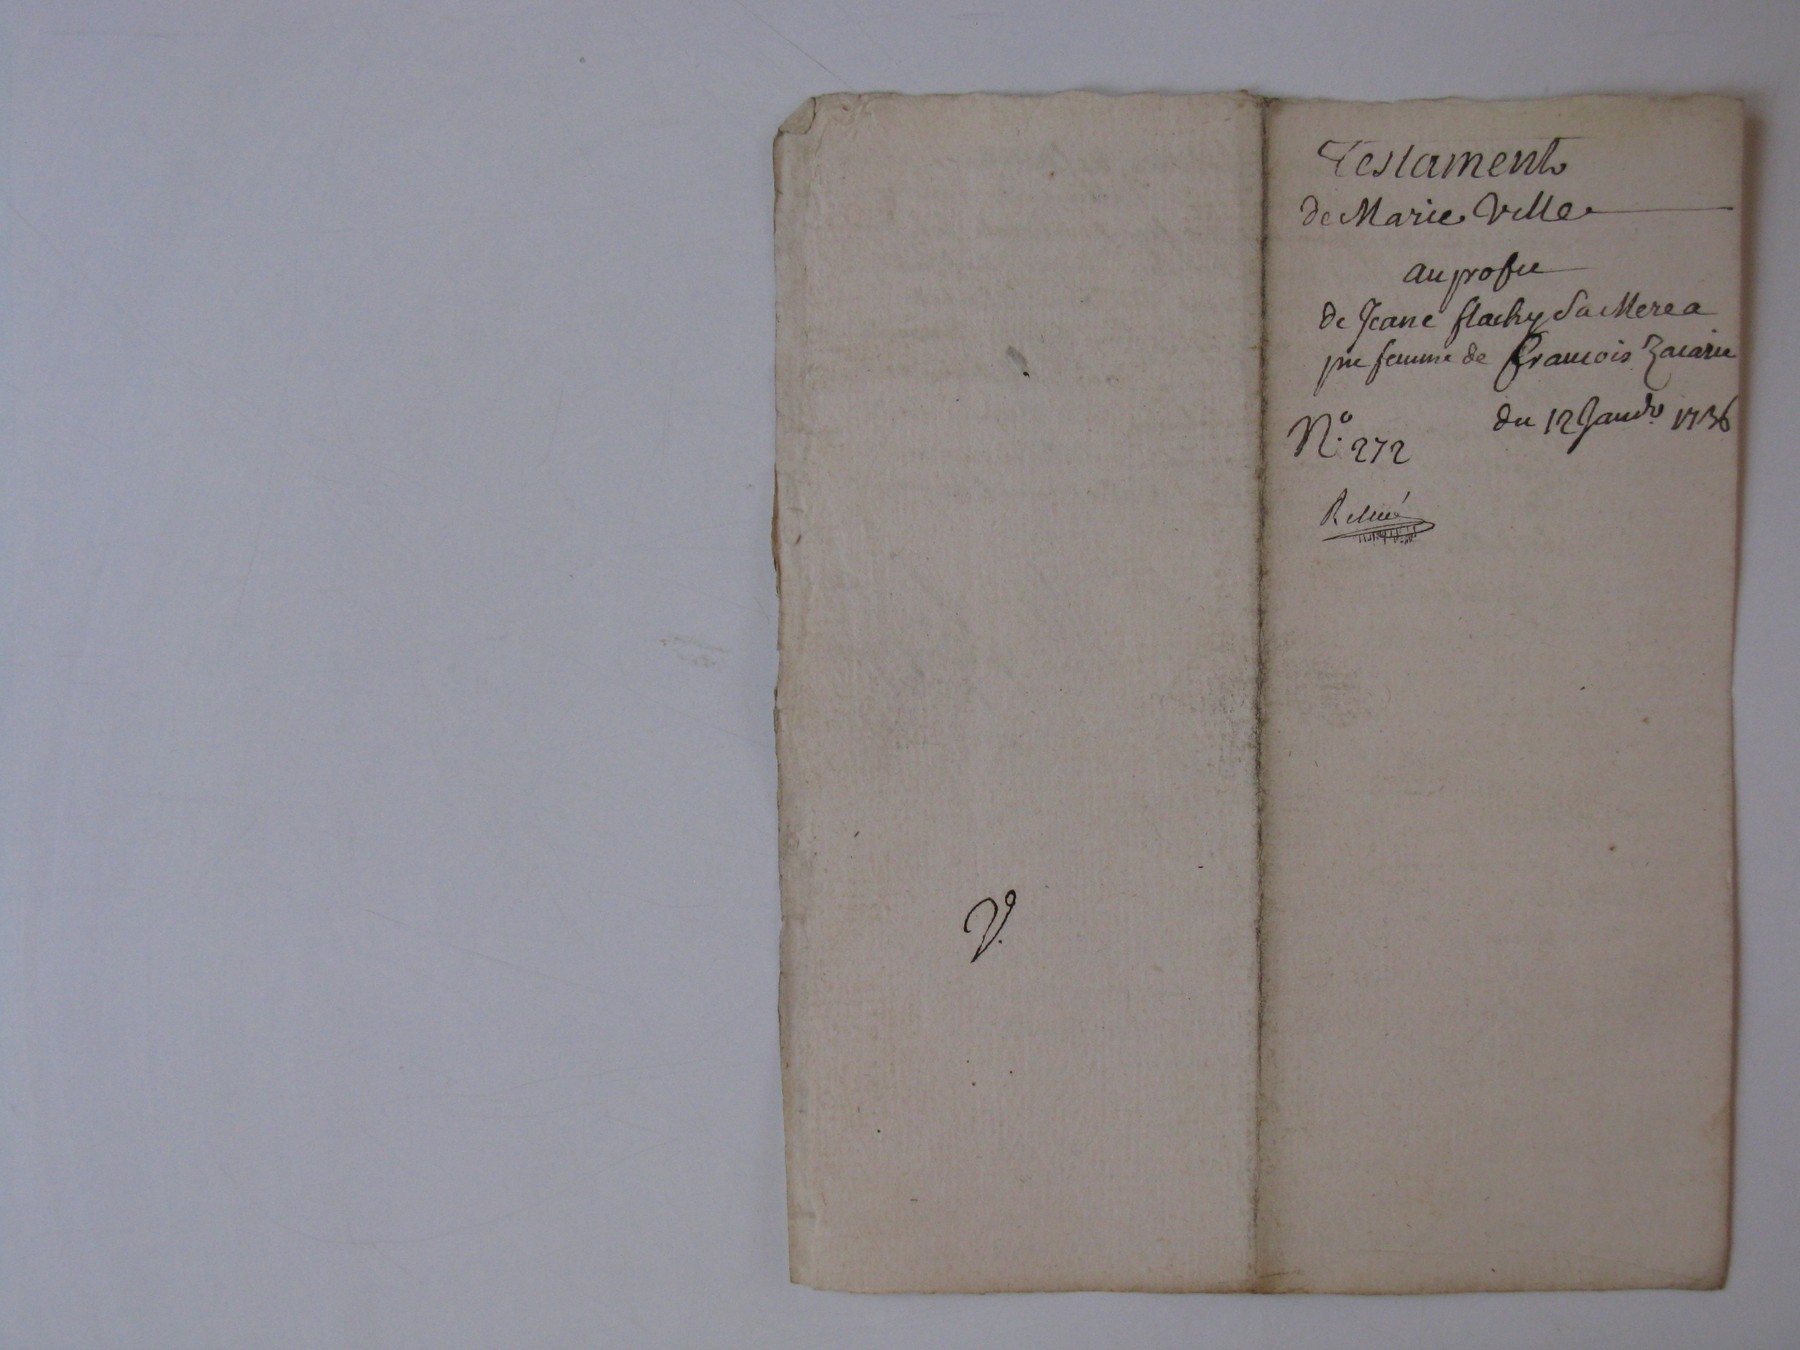 Testament
de Marie Ville
au profit
de Jeane flachy Sa Mere a
pnt femme de francois Zacarie
du 12 Janvr. 1736
No. 272
Vo.